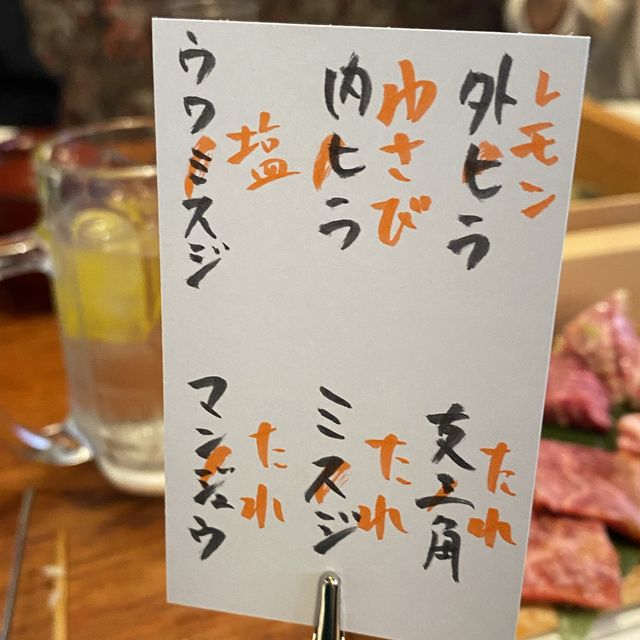 外ヒラ
レモン
内ヒラ
わさび
ウワミスジ
塩
支三角
たれ
ミスジ
たれ
マンジュウ
たれ